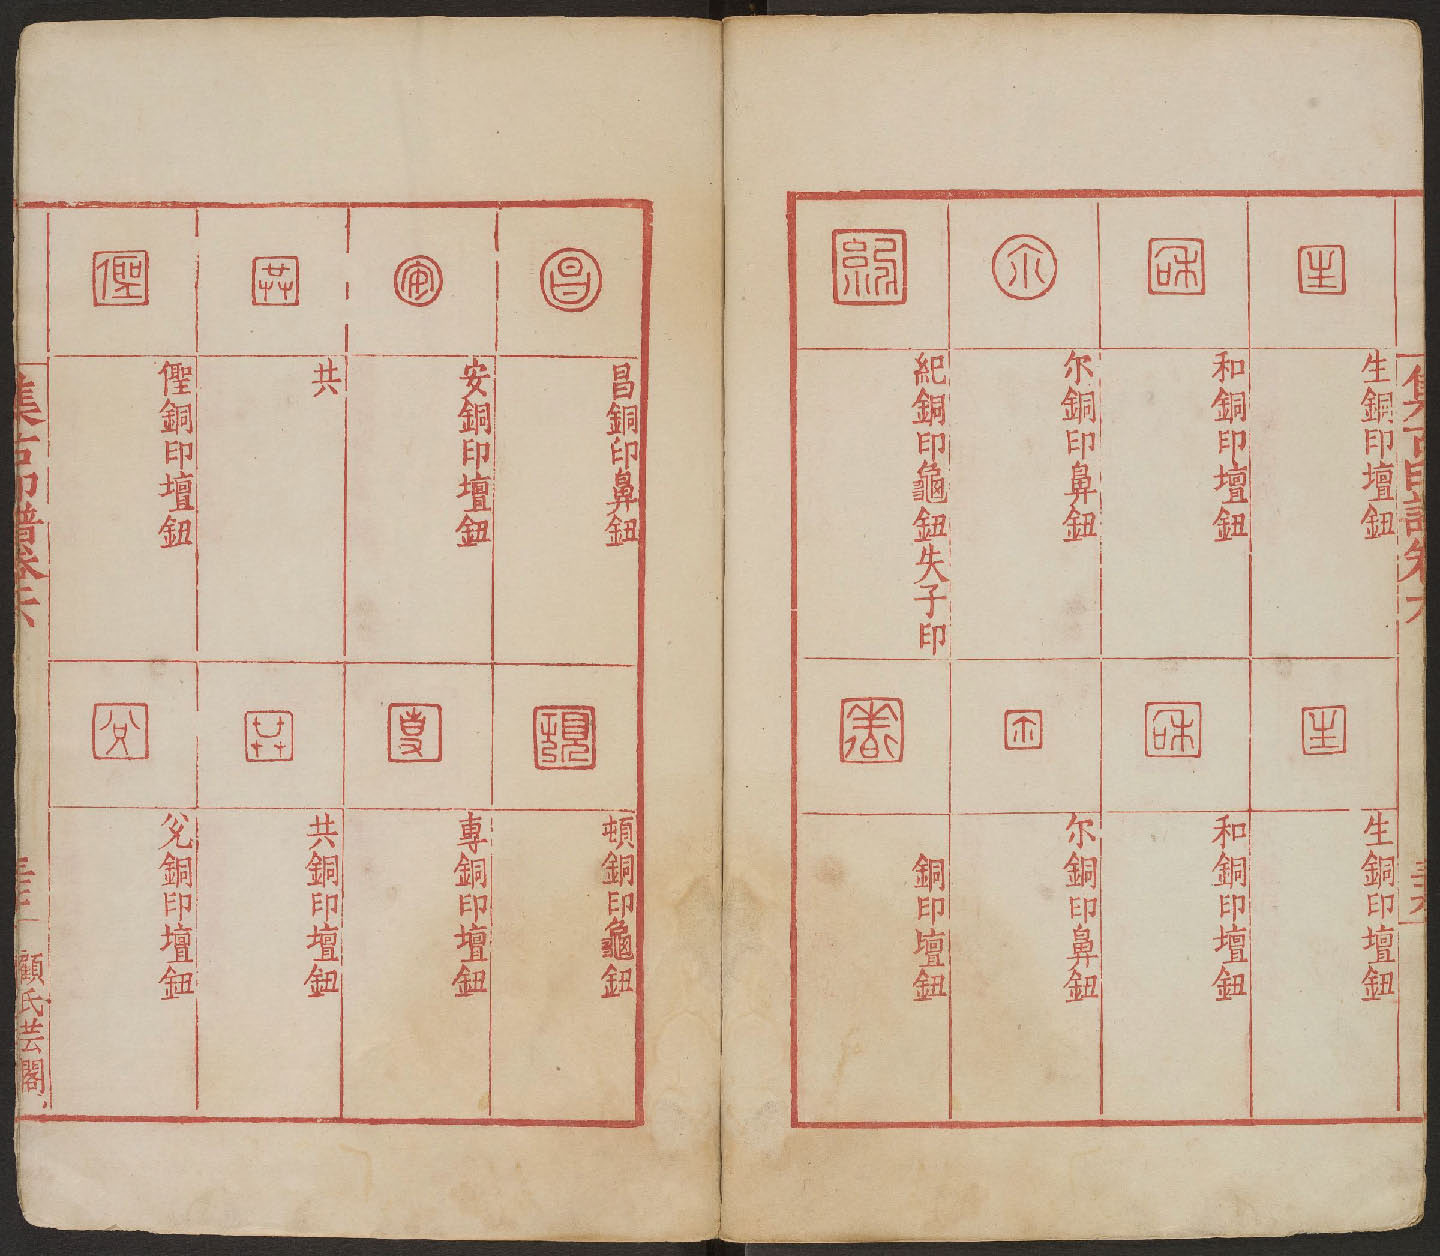 集古印譜卷六
生銅印壇鈕
和銅印壇鈕
尔銅印鼻鈕
紀銅印龜鈕失子印
生銅印壇鈕
和銅印壇鈕
尔銅印鼻鈕
銅印壇鈕
昌銅印鼻鈕
安銅印壇鈕
共
㒑銅印壇鈕
頓銅印龜鈕
專銅印壇鈕
共銅印壇鈕
兊銅印壇鈕
集古印譜卷六
顧氏芸閣